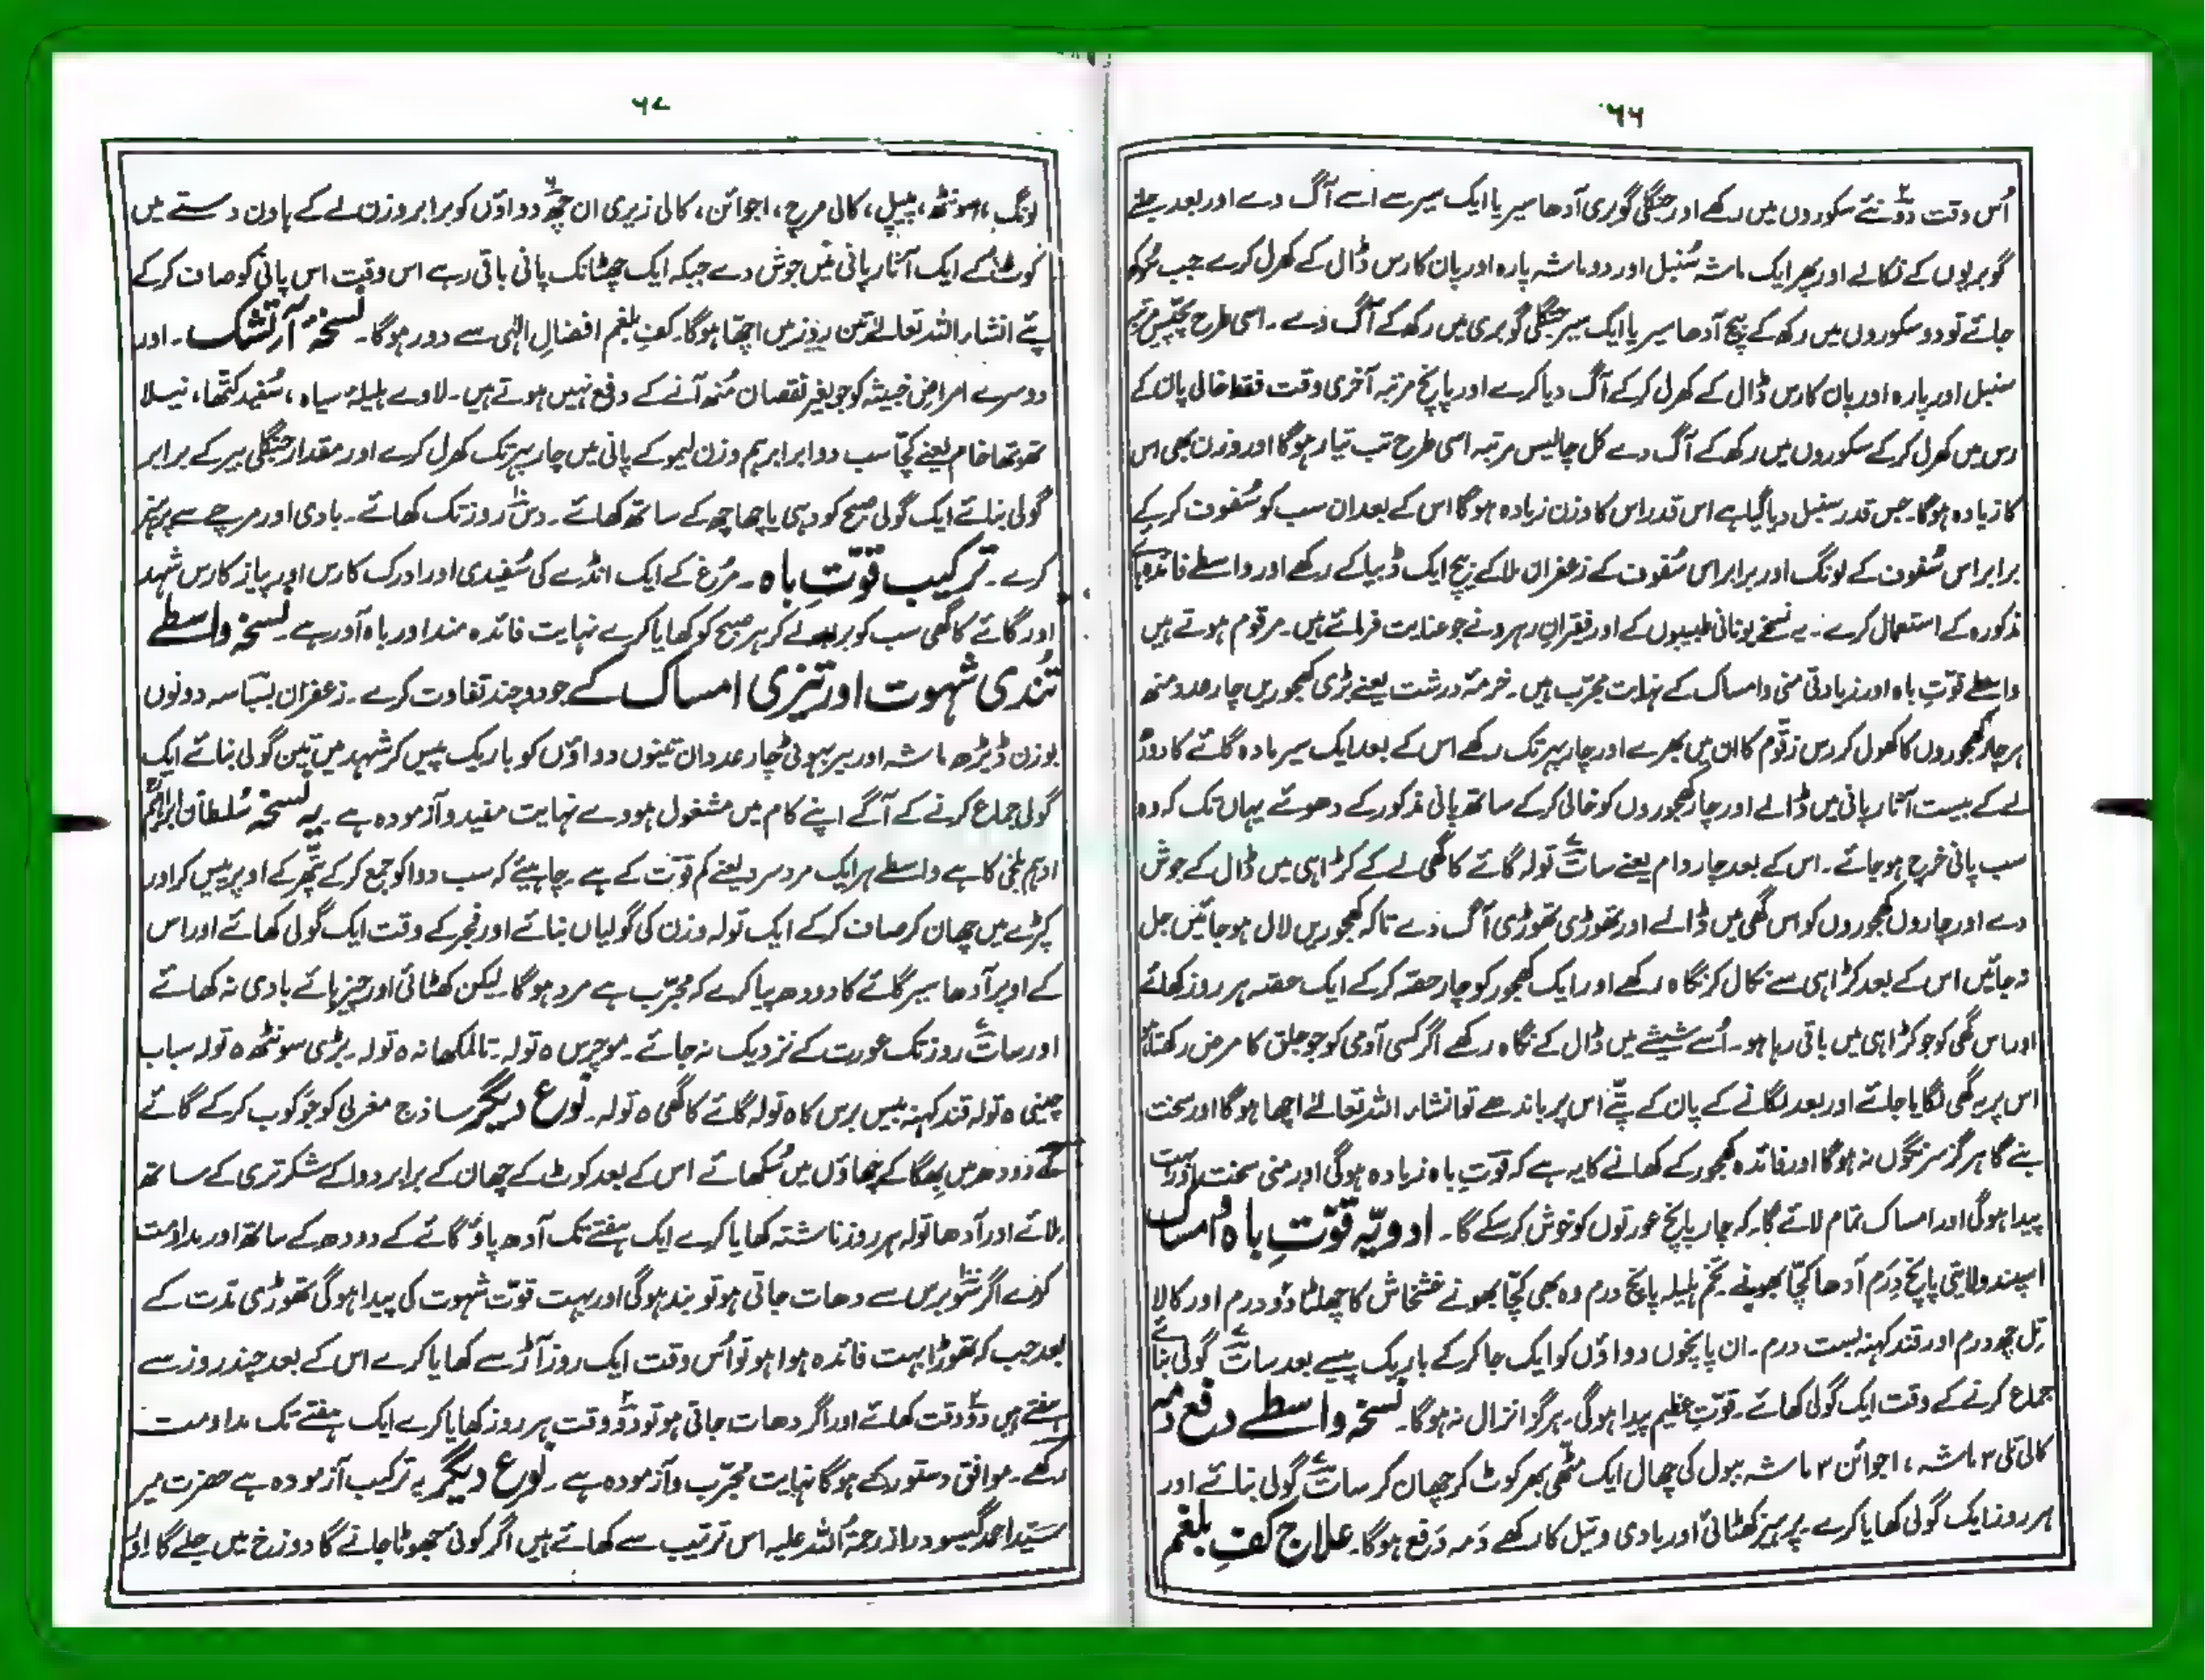 ۶۶
اُس وقت دوٗ نئے سکوروں میں رکھے اور جنگلی گوبری آدھا سیر یا ایک سیر سے اسے آگ دے اور بعد جلنے
گوبریوں کے نکالے اور پھر ایک ماشہ سُنبل اور دو ماشہ پارہ اور پان کا رس ڈال کے کھرل کرے جب سُوکھ
جائے تو دو سکوروں میں رکھ کے بیچ آدھا سیر یا ایک سیر جنگلی گوبری میں رکھ کے آگ دے۔ اسی طرح پچیس مرتبہ
سنبل اور پارہ اور پان کا رس ڈال کے کھرل کر کے آگ دیا کرے اور پانچ مرتبہ آخری وقت فقط خالی پان کے
رس میں کھرل کر کے سکوروں میں رکھ کے آگ دے کل چالیس مرتبہ اسی طرح تب تیار ہوگا اور وزن بھی اس
کا زیادہ ہوگا۔ جس قدر سنبل دیا گیا ہے اس قدر اس کا وزن زیادہ ہوگا اس کے بعد ان سب کو سُفوف کر کے
برابر اس سُفوف کے لونگ اور برابر اس سُفوف کے زعفران ملا کے بیچ ایک ڈبیا کے رکھے اور واسطے فائدہ
مذکورہ کے استعمال کرے۔ یہ نسخے یونانی طبیبوں کے اور فقیرانِ رہرو نے جو عنایت فرمائے ہیں۔ مرقوم ہوتے ہیں
واسطے قوّتِ باہ اور زیادتی منی و امساک کے نہایت مجرّب ہیں۔ خرمۂ درشت یعنے بڑی کھجوریں چار عدد منھ
ہر چار کھجوروں کا کھول کر رس زقّوم کا ان میں بھرے اور چار پہر تک رکھے اس کے بعد ایک سیر مادہ گائے کا دودھ
لے کے بیست آثار پانی میں ڈالے اور چار کھجوروں کو خالی کر کے ساتھ پانی مذکور کے دھوئے یہاں تک کہ وہ
سب پانی خرچ ہو جائے۔ اس کے بعد چار دام یعنے سات تولہ گائے کا گھی لے کے کڑاہی میں ڈال کے جوش
دے اور چاروں کھجوروں کو اس گھی میں ڈالے اور تھوڑی تھوڑی آگ دے تاکہ کھجوریں لال ہو جائیں جل
نہ جائیں اس کے بعد کڑاہی سے نکال کر نگاہ رکھے اور ایک کھجور کو چار حصّہ کر کے ایک حصّہ ہر روز کھائے
اور اس گھی کو جو کڑاہی میں باقی رہا ہو۔ اُسے شیشے میں ڈال کے نگاہ رکھے اگر کسی آدمی کو جو جلق کا مرض رکھتا ہے
اس پر یہ گھی لگایا جائے اور بعد لگانے کے پان کے پتّے اس پر باندھے تو انشاء اللہ تعالےٰ اچھا ہوگا اور سخت
بنے گا ہرگز سرنگوں نہ ہوگا اور فائدہ کھجور کے کھانے کا یہ ہے کہ قوّتِ باہ زیادہ ہوگی اور منی سخت اور بہت
پیدا ہوگی اور امساک تمام لائے گا۔ کہ چار پانچ عورتوں کو خوش کر سکے گا۔ ادویّہ قوّتِ باہ و اُمساک
اسپند ولایتی پانچ دِرَم آدھا کچّا بھونے۔ تخم ہلیلہ پانچ درم وہ بھی کچّا بھونے خشخاش کا چھلٹا دو درم اور کالا
تِل چھ درم اور قند کہنہ بست درم۔ ان پانچوں دواؤں کو ایک جا کر کے باریک پیسے بعد سات گولی بنائے
جماع کرنے کے وقت ایک گولی کھائے۔ قوّتِ عظیم پیدا ہوگی۔ ہرگز انزال نہ ہوگا۔ نسخہ واسطے دفع دمہ
کالی تلی ۳ ماشہ، اجوائن ۳ ماشہ ببول کی چھال ایک مٹّھی بھر کوٹ کر چھان کر سات گولی بنائے اور
ہر روز ایک گولی کھایا کرے۔ پرہیز کھٹائی اور بادی و تیل کا رکھے دَمہ دَفع ہوگا۔ علاج کفِ بلغم
۶۷
لونگ، سونٹھ، پیپل، کالی مرچ، اجوائن، کالی زیری ان چھ دواؤں کو برابر وزن لے کے ہاون دستے میں
کوٹ کے ایک آثار پانی میں جوش دے جبکہ ایک چھٹانک پانی باقی رہے اس وقت اس پانی کو صاف کر کے
پئے انشاء اللہ تعالےٰ تین روز میں اچّھا ہوگا۔ کفِ بلغم افضالِ الٰہی سے دور ہوگا۔ نسخۂ آرتشک۔ اور
دوسرے امراضِ خبیثہ کو جو بغیر نقصان مُنھ آنے کے دفع نہیں ہوتے ہیں۔ لاوے ہلیلۂ سیاہ، سُفید کتّھا، نیلا
تھوتھا خام یعنے کچّا سب دوا برابر ہم وزن لیمو کے پانی میں چار پہر تک کھرل کرے اور مقدار جنگلی بیر کے برابر
گولی بنائے ایک گولی صبح کو دہی یا چھاچھ کے ساتھ کھائے۔ دس روز تک کھائے۔ بادی اور مرچے سے پرہیز
کرے۔ ترکیب قوّتِ باہ۔ مرُغ کے ایک انڈے کی سُفیدی اور ادرک کا رس اور پیاز کا رس شہد
اور گائے کا گھی سب کو برابر لے کر ہر صبح کو کھایا کرے نہایت فائدہ مند اور باہ آور ہے۔ نسخہ واسطے
تُندی شہوت اور تیزی امساک کے جو دو چند تفاوت کرے۔ زعفران بسباسہ دونوں
بوزن ڈیڑھ ماشہ اور بیر بہوٹی چار عدد ان تینوں دواؤں کو باریک پیس کر شہد میں تین گولی بنائے ایک
گولی جماع کرنے کے آگے اپنے کام میں مشغول ہووے نہایت مفید و آزمودہ ہے۔ یہ نسخہ سُلطان ابراہیم
ادہم بلخی کا ہے واسطے ہر ایک مرد سرد یعنے کم قوّت کے ہے۔ چاہیئے کہ سب دوا کو جمع کر کے پتّھر کے اوپر پیس کر اور
کپڑے میں چھان کر صاف کر کے ایک تولہ وزن کی گولیاں بنائے اور فجر کے وقت ایک گولی کھائے اور اس
کے اوپر آدھا سیر گائے کا دودھ پیا کرے کہ مجرّب ہے مرد ہوگا۔ لیکن کھٹائی اور چیز ہائے بادی نہ کھائے
اور سات روز تک عورت کے نزدیک نہ جائے۔ موچرس ۵ تولہ۔ تالمکھانہ ۵ تولہ۔ بڑی سونٹھ ۵ تولہ سباب
چینی ۵ تولہ قند کہنہ بیس برس کا ۵ تولہ گائے کا گھی ۵ تولہ۔ نوع دیگر ساذج مغربی کو جَو کوب کر کے گائے
کے دودھ میں بھگا کے چھاؤں میں سُکھائے اس کے بعد کوٹ کے چھان کے برابر دوا کے شکر تری کے ساتھ
ملائے اور آدھا تولہ ہر روز ناشتہ کھایا کرے ایک ہفتے تک آدھ پاؤ گائے کے دودھ کے ساتھ اور مداومت
کرے اگر سَو برس سے دھات جاتی ہو تو بند ہوگی اور بہت قوّت شہوت کی پیدا ہوگی تھوڑی مدّت کے
بعد جب کہ تھوڑا بہت فائدہ ہوا ہو تو اُس وقت ایک روز آڑ سے کھایا کرے اس کے بعد چند روز سے
ہفتے میں دو وقت کھائے اور اگر دھات جاتی ہو تو دو وقت ہر روز کھایا کرے ایک ہفتے تک مداومت
رکھے۔ موافق دستور کے ہوگا نہایت مجرّب و آزمودہ ہے۔ نوع دیگر یہ ترکیب آزمودہ ہے حضرت میر
سیّد احمد گیسو دراز رحمۃُ اللہ علیہ اس ترتیب سے کھاتے ہیں اگر کوئی جھوٹا جانے گا دوزخ میں جلے گا اوّل